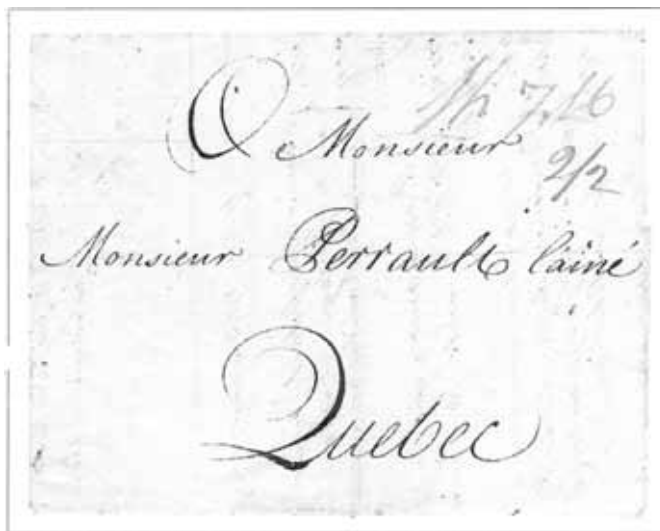 A Monsieur
2/2
Monsieur Perrault lainé
Quebec